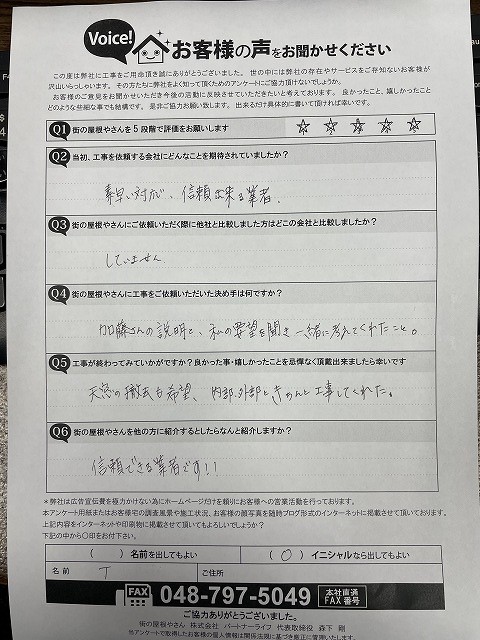 Voice! お客様の声をお聞かせください
この度は弊社に工事をご用命頂き誠にありがとうございました。世の中には弊社の存在やサービスをご存知ないお客様が
沢山いらっしゃいます。その方たちに弊社をよく知って頂くためのアンケートにご協力頂けないでしょうか。
お客様のご意見をお聞かせいただき今後の活動に反映させていただきたいと考えております。良かったこと、嬉しかったこと
どのような些細な事でも結構です。是非ご協力お願い致します。出来るだけ具体的に書いて頂ければ幸いです。
Q1 街の屋根やさんを5段階で評価をお願いします ☆ ☆ ☆ ☆ ☆
Q2 当初、工事を依頼する会社にどんなことを期待されていましたか?
素早い対応、信頼出来る業者。
Q3 街の屋根やさんにご依頼いただく際に他社と比較しました方はどこの会社と比較しましたか?
していません
Q4 街の屋根やさんに工事をご依頼いただいた決め手は何ですか?
加藤さんの説明と、私の要望を聞き一緒に考えてくれたこと。
Q5 工事が終わってみていかがですか?良かった事・嬉しかったことを忌憚なく頂戴出来ましたら幸いです
天窓の撤去を希望、内部、外部ときちんと工事してくれた。
Q6 街の屋根やさんを他の方に紹介するとしたらなんと紹介しますか?
信頼できる業者です!!
*弊社は広告宣伝費を極力かけない為にホームページだけを頼りにお客様への営業活動を行っております。
本アンケート用紙またはお客様宅の調査風景や施工状況、お客様の顔写真を随時ブログ形式のインターネットに掲載させて頂いております。
上記内容をインターネットや印刷物に掲載させて頂いてもよろしいでしょうか?
下記の中から〇印をお付下さい。
( ) 名前を出してもよい ( 〇 ) イニシャルなら出してもよい
名前 T ご住所
FAX 048-797-5049 本社直通 FAX番号
ご協力ありがとうございました。
街の屋根やさん 株式会社 パートナーライフ 代表取締役 森下 剛
当アンケートで取得したお客様の個人情報は関係法規に基づき厳正に管理いたします。